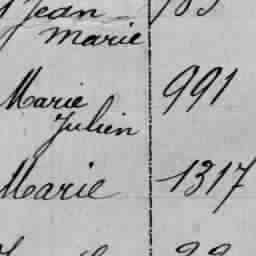 Jean
Marie
Marie 991
Julien
Marie 1317